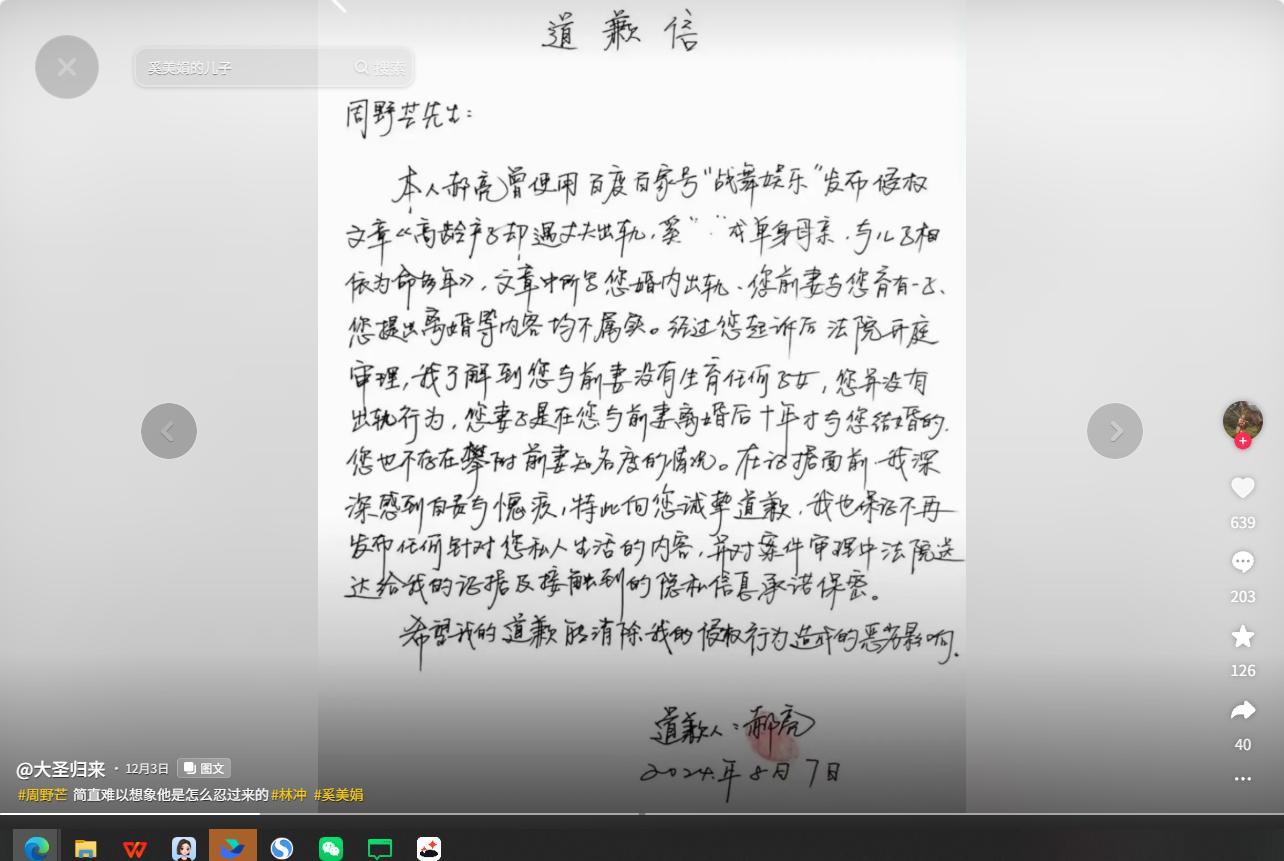 道歉信
奚美娟的儿子
搜索
周野芒先生：
本人郝亮曾使用百度百家号“战舞娱乐”发布侵权
文章《高龄产子却遇丈夫出轨，奚” 成单身母亲，与儿子相
依为命多年》，文章中所写您婚内出轨、您前妻与您育有一子、
您提出离婚等内容均不属实。经过您起诉后法院开庭
审理，我了解到您与前妻没有生育任何子女，您并没有
出轨行为，您妻子是在您与前妻离婚后十年才与您结婚的，
您也不存在攀附前妻知名度的情况。在证据面前，我深
深感到自责与愧疚，特此向您诚挚道歉，我也保证不再
发布任何针对您私人生活的内容，并对案件审理中法院送
达给我的证据及接触到的隐私信息承诺保密。
希望我的道歉能消除我的侵权行为造成的恶劣影响。
道歉人：郝亮
2024年8月7日
639
203
126
40
@大圣归来 · 12月3日 图文
#周野芒 简直难以想象他是怎么忍过来的#林冲 #奚美娟